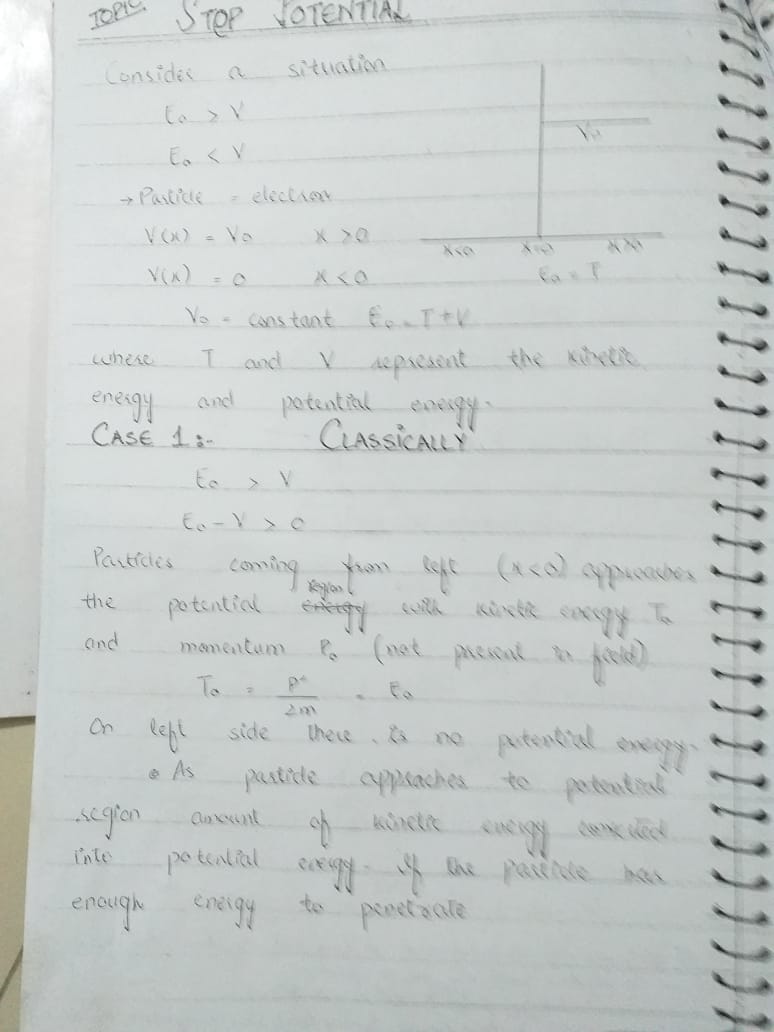 TOPIC STEP POTENTIAL
Consider a situation
E₀ > V
E₀ < V
V₀
→ Particle = electron
V(x) = V₀ x > 0
x<0 x=0 x>0
V(x) = 0 x < 0
E₀ = T
V₀ = constant E₀ = T + V
where T and V represent the kinetic
energy and potential energy.
CASE 1:- CLASSICALLY
E₀ > V
E₀ - V > 0
Particles coming from left (x<0) approaches
the potential region with kinetic energy T₀
and momentum P₀ (not present in field)
T₀ = P²/2m = E₀
On left side there is no potential energy.
• As particle approaches to potential
region amount of kinetic energy converted
into potential energy. If the particle has
enough energy to penetrate